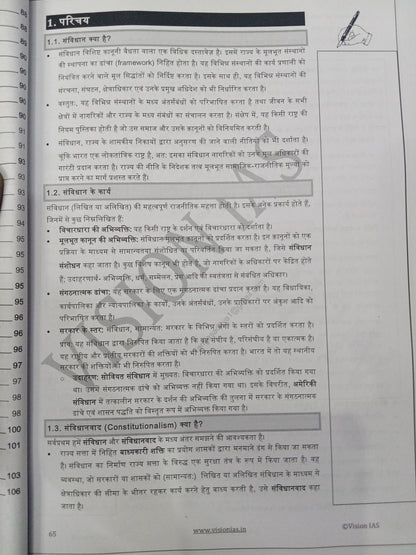 88
88
89
90
90
91
93
93
94
94
95
95
95
95
96
96
96
96
97
97
97
100
101
103
106
1. परिचय
1.1. संविधान क्या है?
• संविधान विशिष्ट कानूनी वैधता वाला एक विधिक दस्तावेज़ है। इसमें राज्य के मूलभूत संस्थानों
की स्थापना का ढांचा (framework) निहित होता है। यह विभिन्न संस्थानों की कार्य प्रणाली को
निर्धारित करने वाले मूल सिद्धांतों को निर्दिष्ट करता है। इसके साथ ही, यह विभिन्न संस्थानों की
संरचना, संघटन, क्षेत्राधिकार एवं उनके प्रमुख अधिदेश को भी निर्धारित करता है।
• वस्तुत:, यह विभिन्न संस्थानों के मध्य अंतर्संबंधों को परिभाषित करता है तथा जीवन के सभी
क्षेत्रों में नागरिकों और राज्य के मध्य संबंधों का संचालन करता है। संक्षेप में, यह किसी राष्ट्र की
नियम पुस्तिका होती है जो उस समाज और उसके कानूनों को विनियमित करती है।
• संविधान, राज्य के शासकीय निकायों द्वारा अनुसरण की जाने वाली नीतियों को भी दर्शाता है।
चूंकि भारत एक लोकतांत्रिक राष्ट्र है, अत: इसका संविधान नागरिकों को उनके मूल अधिकारों की
गारंटी प्रदान करता है। राज्य की नीति के निदेशक तत्व मूलभूत सामाजिक-राजनीतिक मूल्यों को
प्राप्त करने का मार्ग प्रशस्त करते हैं।
1.2. संविधान के कार्य
संविधान (लिखित या अलिखित) की महत्वपूर्ण राजनीतिक महत्ता होती है। इसके अनेक प्रकार्य होते हैं,
जिनमें से कुछ निम्नलिखित हैं:
• विचारधारा की अभिव्यक्ति: यह किसी राष्ट्र के दर्शन एवं विचारधारा को दर्शाता है।
• मूलभूत कानून की अभिव्यक्ति: संविधान मूलभूत कानूनों को प्रदर्शित करता है। इन कानूनों को एक
प्रक्रिया के माध्यम से सामान्यतया संशोधित या परिवर्तित किया जा सकता है, जिसे संविधान
संशोधन कहा जाता है। कुछ विशिष्ट कानून भी होते हैं, जो नागरिकों के अधिकारों पर केंद्रित होते
हैं; उदाहरणार्थ- अभिव्यक्ति, धर्म, सम्मेलन, प्रेस आदि की स्वतंत्रता से संबंधित अधिकार।
• संगठनात्मक ढांचा: यह सरकार के लिए एक संगठनात्मक ढांचा प्रदान करता है। यह विधायिका,
कार्यपालिका और न्यायपालिका के कार्यों, उनके अंतर्संबंधों, उनके प्राधिकारों पर अंकुश आदि को
परिभाषित करता है।
• सरकार के स्तर: संविधान, सामान्यत: सरकार के विभिन्न अंगों के स्तरों को प्रदर्शित करता है।
प्राय: यह संविधान द्वारा निरूपित किया जाता है कि वह संघीय है, परिसंघीय है या एकात्मक है।
यह राष्ट्रीय और प्रांतीय सरकारों की शक्तियों को भी निरूपित करता है। भारत में तो यह स्थानीय
सरकार की शक्तियों को भी निरूपित करता है।
• उदाहरण: सोवियत संविधान में मुख्यत: विचारधारा की अभिव्यक्ति को प्रदर्शित किया गया
था। उसमें संगठनात्मक ढांचे को अभिव्यक्त नहीं किया गया था। इसके विपरीत, अमेरिकी
संविधान में तत्कालीन सरकार के दर्शन की अभिव्यक्ति की तुलना में सरकार के संगठनात्मक
ढांचे एवं शासन पद्धति को विस्तृत रूप में अभिव्यक्त किया गया है।
1.3. संविधानवाद (Constitutionalism) क्या है?
सर्वप्रथम हमें संविधान और संविधानवाद के मध्य अंतर समझने की आवश्यकता है।
• राज्य सत्ता में निहित बाध्यकारी शक्ति का प्रयोग शासकों द्वारा मनमाने ढंग से किया जा सकता
है। संविधान का निर्माण राज्य सत्ता के विरुद्ध एक सुरक्षा तंत्र के रूप में किया जाता है। वह
व्यवस्था, जो सरकारों या शासकों को (सामान्यत:) लिखित या अलिखित संविधान के माध्यम से
क्षेत्राधिकार की सीमा के भीतर रहकर कार्य करने हेतु बाध्य करती है, उसे संविधानवाद कहा
जाता है।
65
www.visionias.in
©Vision IAS
VISION IAS